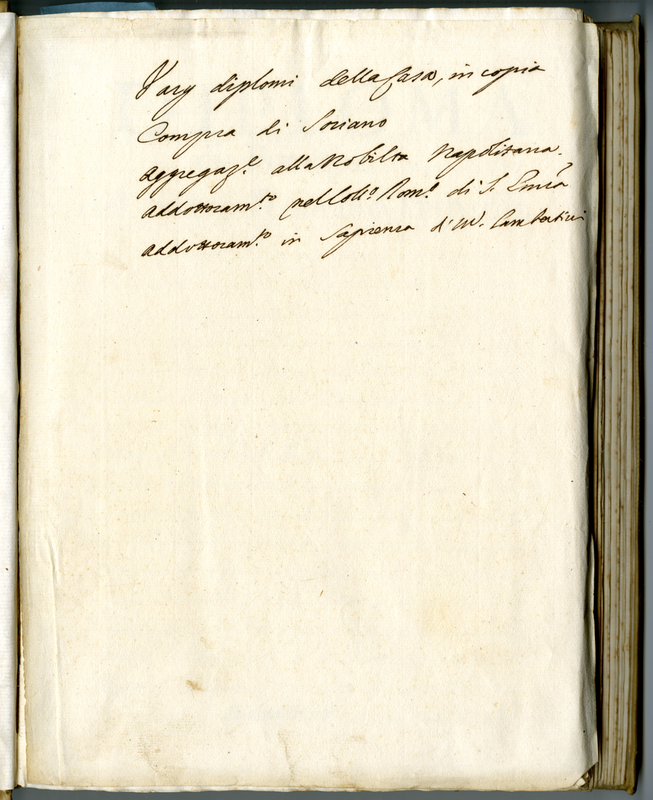 Varij diplomi della Casa, in copia
Compra di Soriano
aggregaz.e alla Nobiltà Napolitana.
addottoram.to nel Coll.o Rom.o di S. Em.za
addottoram.to in Sapienza d' M. Lambertini